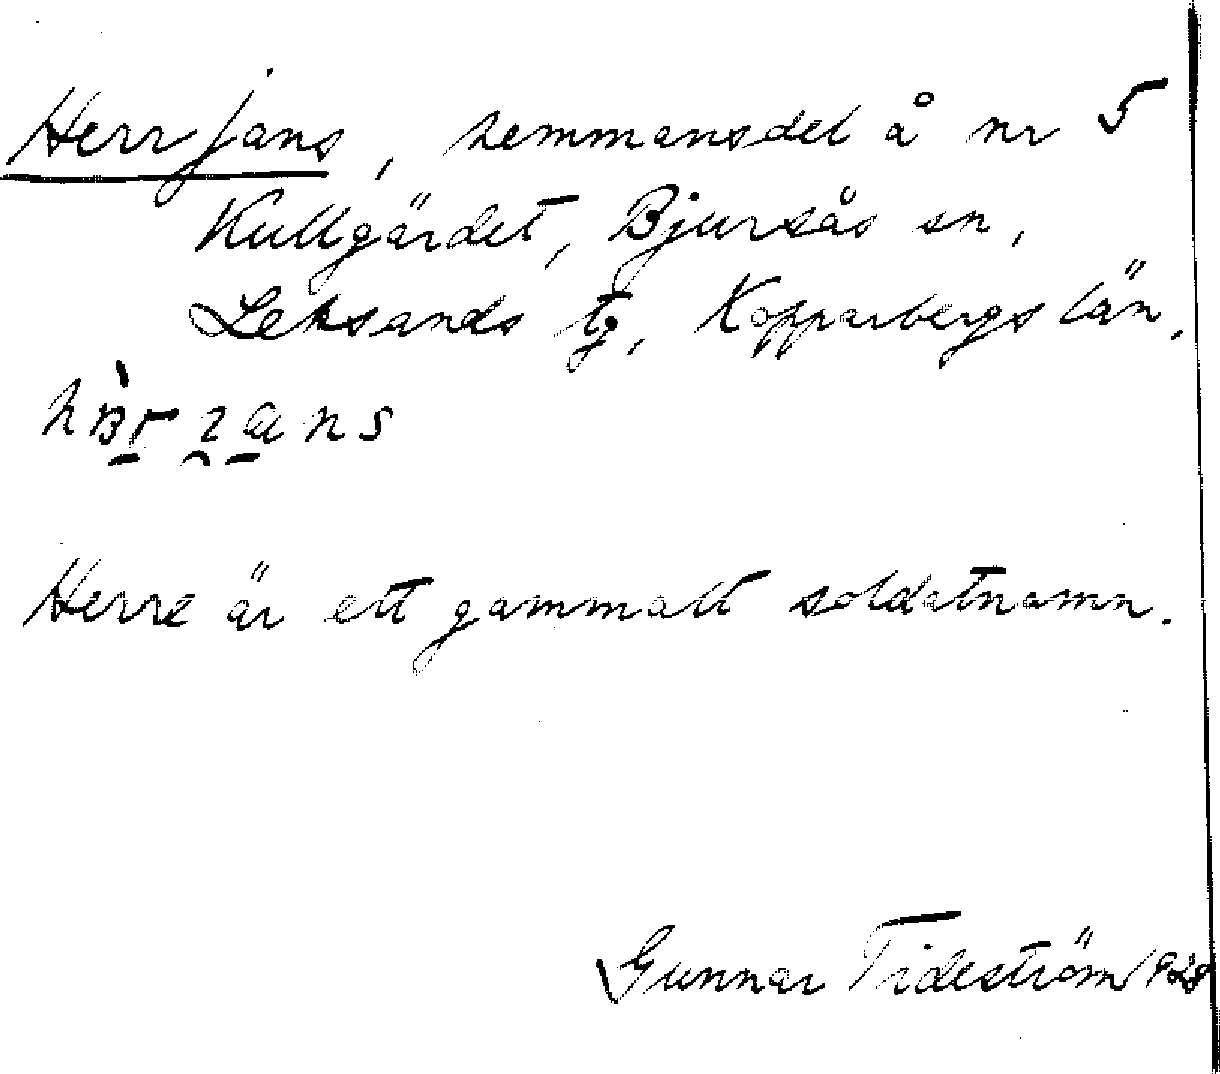 Herrjans, hemmansdel å nr 5
Kullgärdet, Bjursås sn,
Leksands tg, Kopparbergs län.
Herre är ett gammalt soldatnamn.
Gunnar Tideström 1928